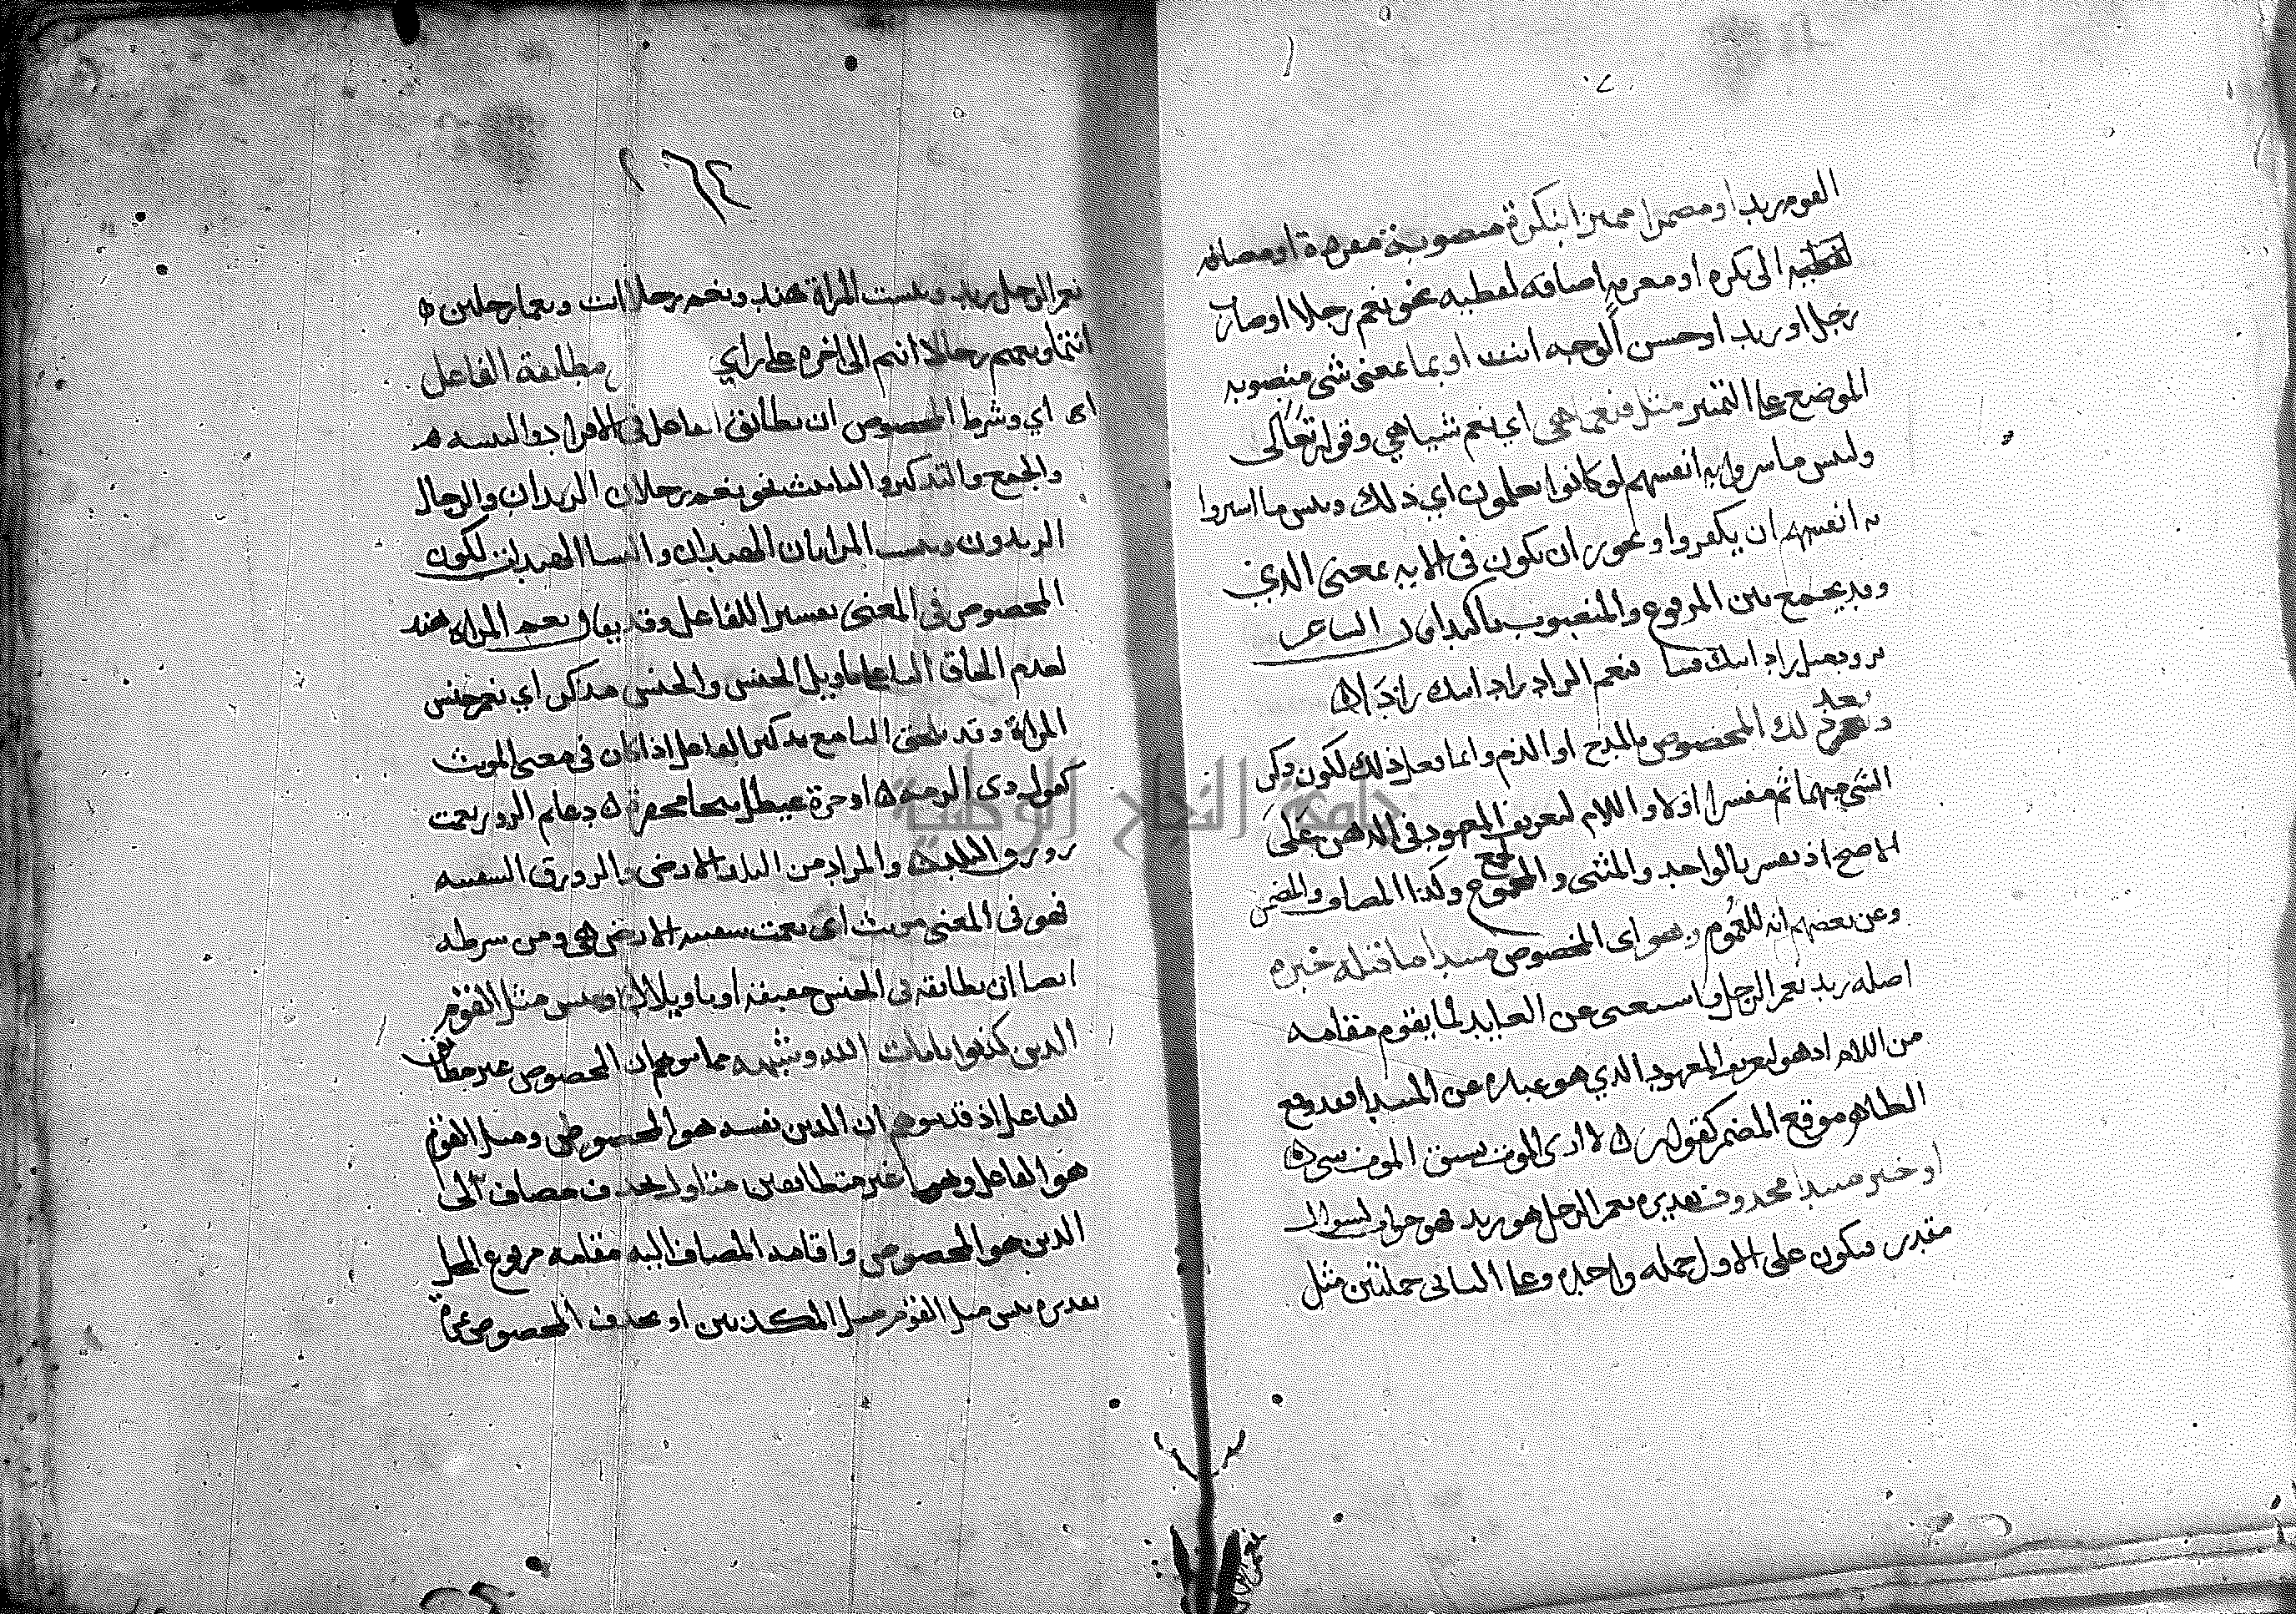 القوم زيد او مضمرا مميزا بنكرة منصوبة مفردة او مضافه
لفظية الى نكره او معرفه اضافه لفظيه نحو نعم رجلا او ضارب
رجل او زيد او حسن الوجه انت او بما بمعنى شى منصوبه
الموضع على التمييز مثل فنعما هى اي نعم شيا هي وقوله تعالى
ولبيس ما شروا به انفسهم لو كانوا يعلمون اي ذلك وبيس ما اشتروا
به انفسهم ان يكفروا ويجوز ان يكون في الايه بمعنى الذي
وقد يجمع بين المرفوع والمنصوب تاكيدا قال الشاعر
تزود مثل زاد ابيك فينا فنعم الزاد زاد ابيك زادا
بعد
وبعد ذلك المخصوص بالمدح او الذم وانما فعل ذلك لكون ذكر
الشى مبهما ثم مفسرا اولا واللام لتعريف المعهود في الذهن على
الاصح اذ يفسر بالواحد والمثنى والمجموع وكذا المضاف والمضمر
الجمع
وعن بعضهم انه للعموم وهو اى المخصوص مبتدا ما قبله خبره
اصله زيد نعم الرجل واستغنى عن العايد لما يقوم مقامه
من اللام اذ هو لتعريف المعهود الذي هو عباره عن المبتدا فقد وقع
الظاهر موقع المضمر كقوله لا ارى الموت يسبق الموت شى
او خبر مبتدا محذوف تقديره نعم الرجل هو زيد فهو جواب لسوال
مقدر فيكون على الاول جمله واحده وعلى الثانى جملتين مثل
نعم الرجل زيد وبيست المراة هند ونعم رجلا انت ونعما رجلين
انتما ونعم رجالا انتم الى اخره على راي مطابقة الفاعل
اى اي وشرط المخصوص ان يطابق الفاعل في الافراد والتثنيه
والجمع والتذكير والتانيث نحو نعم رجلان الزيدان والرجال
الزيدون وبيست المراتان الهندان والنسا الهندات لكون
المخصوص في المعنى تفسيرا للفاعل وقد يقال نعم المراه هند
لعدم الحاق التا على تاويل الجنس والجنس مذكر اي نعم جنس
المراة وقد تلحق التا مع تذكير الفاعل اذا كان في معنى المونث
كقول ذى الرمه او حرة عيطل ثبجا مجفرة دعايم الزور نعمت
زورق البلد والمراد من البلد الارض والزورق السفينه
فهو في المعنى مونث اى نعمت سفينه الارض هى ومن شرطه
ايضا ان يطابقه في الجنس حقيقة او تاويلا وبيس مثل القوم
الذين كذبوا بايات الله وشبهه مما يوهم ان المخصوص غير مطابق
للفاعل اذ قد يتوهم ان الذين نفسه هو المخصوص ومثل القوم
هو الفاعل وهما غير متطابقين متاول بحذف مضاف الى
الذين هو المخصوص واقامه المضاف اليه مقامه مرفوع المحل
تقديره بيس مثل القوم مثل المكذبين او بحذف المخصوص
جامعة النجاح الوطنية